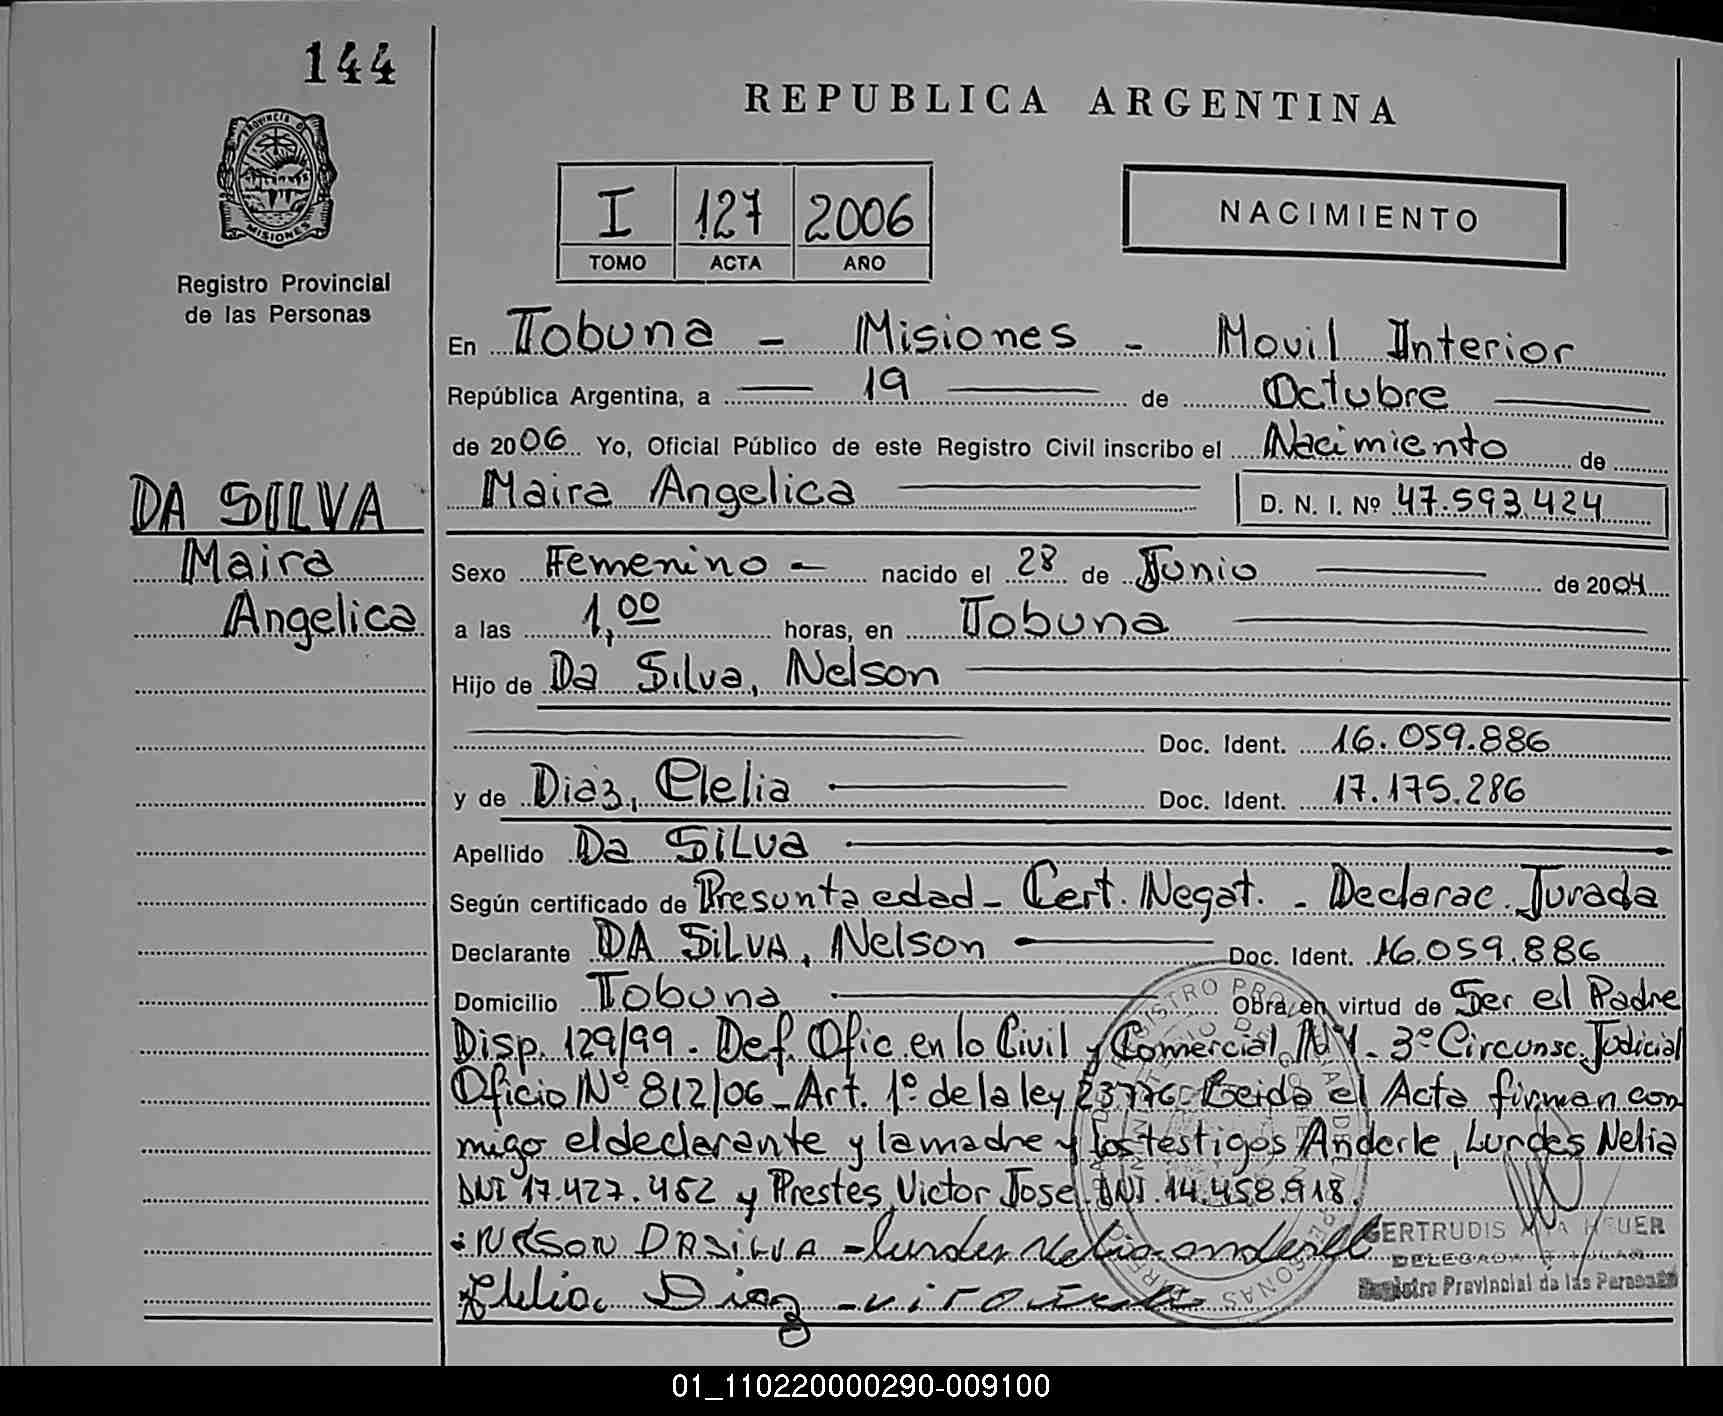 144
REPUBLICA ARGENTINA
PROVINCIA DE
MISIONES
Registro Provincial
de las Personas
I 127 2006
TOMO ACTA AÑO
NACIMIENTO
En Tobuna - Misiones - Movil Interior
República Argentina, a 19 de Octubre
de 2006 Yo, Oficial Público de este Registro Civil inscribo el Nacimiento de
Maira Angelica D. N. I. Nº 47.593.424
DA SILVA
Maira
Angelica
Sexo Femenino - nacido el 28 de Junio de 2004
a las 1,00 horas, en Tobuna
Hijo de Da Silva, Nelson
Doc. Ident. 16.059.886
y de Diaz, Clelia Doc. Ident. 17.175.286
Apellido Da SiLva
Según certificado de Presunta edad - Cert. Negat. - Declarac. Jurada
Declarante DA SiLVA, Nelson Doc. Ident. 16.059.886
Domicilio Tobuna Obra en virtud de Ser el Padre
Disp. 129/99. Def. Ofic. en lo Civil y Comercial Nº 1 - 3º Circunsc. Judicial
Oficio Nº 812/06 - Art. 1º de la ley 23776 Leida el Acta firman con
migo el declarante y la madre y los testigos Anderle, Lurdes Nelia
DNI 17.427.452 y Prestes, Victor Jose DNI. 14.458.918.
NELSON DASILVA - lurdes Nelia anderle
Clelia Diaz
GERTRUDIS HEUER
DELEGADA TITULAR
Registro Provincial de las Personas
01_110220000290-009100